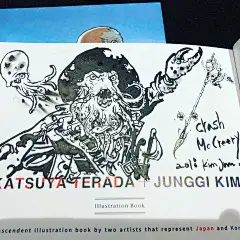 Crash
McCreery
2018 Kim Jung
KATSUYA TERADA + JUNGGI KIM
Illustration Book
scendent illustration book by two artists that represent Japan and Ko